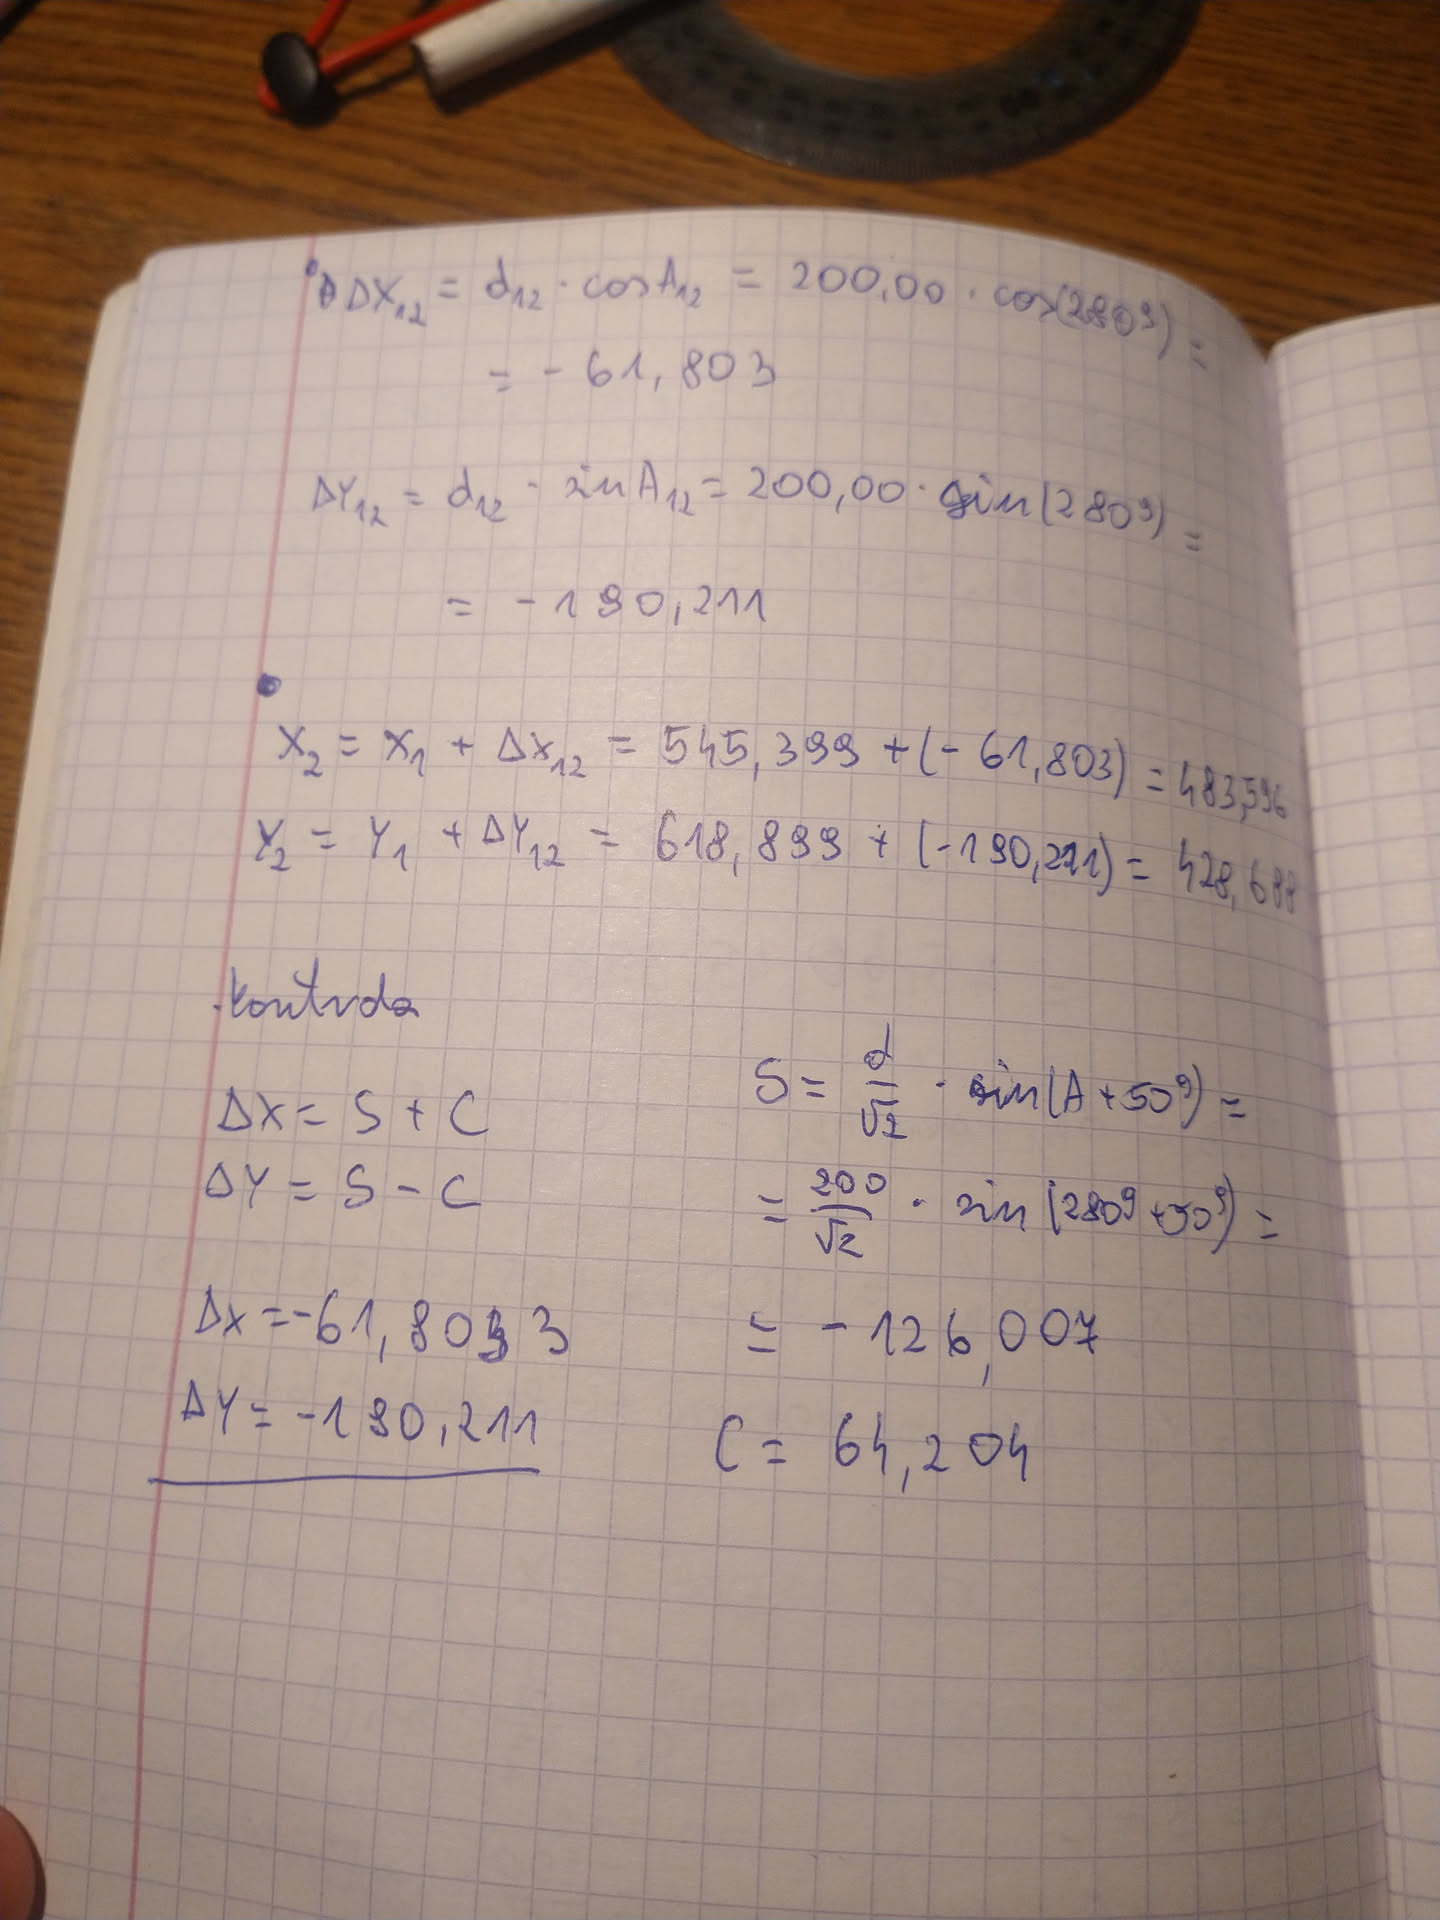 ΔX₁₂ = d₁₂ · cosA₁₂ = 200,00 · cos(280ᵍ) =
= - 61,803
ΔY₁₂ = d₁₂ · sinA₁₂ = 200,00 · sin(280ᵍ) =
= - 190,211
X₂ = X₁ + ΔX₁₂ = 545,399 + (- 61,803) = 483,596
Y₂ = Y₁ + ΔY₁₂ = 618,899 + (-190,211) = 428,688
kontrola
ΔX = S + C
ΔY = S - C
ΔX = -61,803 3
ΔY = -190,211
S = d/√2 · sin(A+50ᵍ) =
= 200/√2 · sin(280ᵍ+50ᵍ) =
= - 126,007
C = 64,204